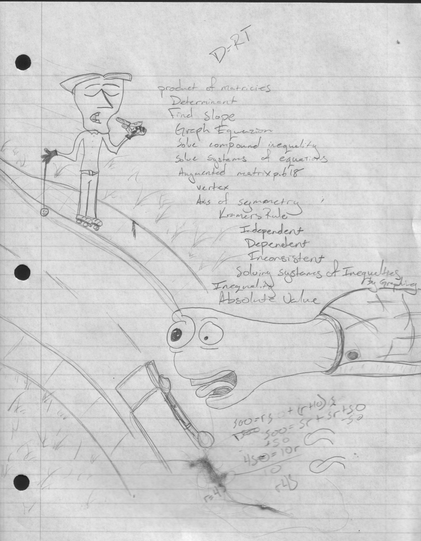 D=RT
product of matricies
Determinant
Find slope
Graph Equasion
Solve compound inequality
Solve systems of equations
Augmented matrix p.618
vertex
Axis of symmetry
Kramers Rule
Independent
Dependent
Inconsistent
Solving systems of Inequalities
By Graphing
Inequality
Absolute Value
500=5r+5r+50
450=10r
r=45
r=45